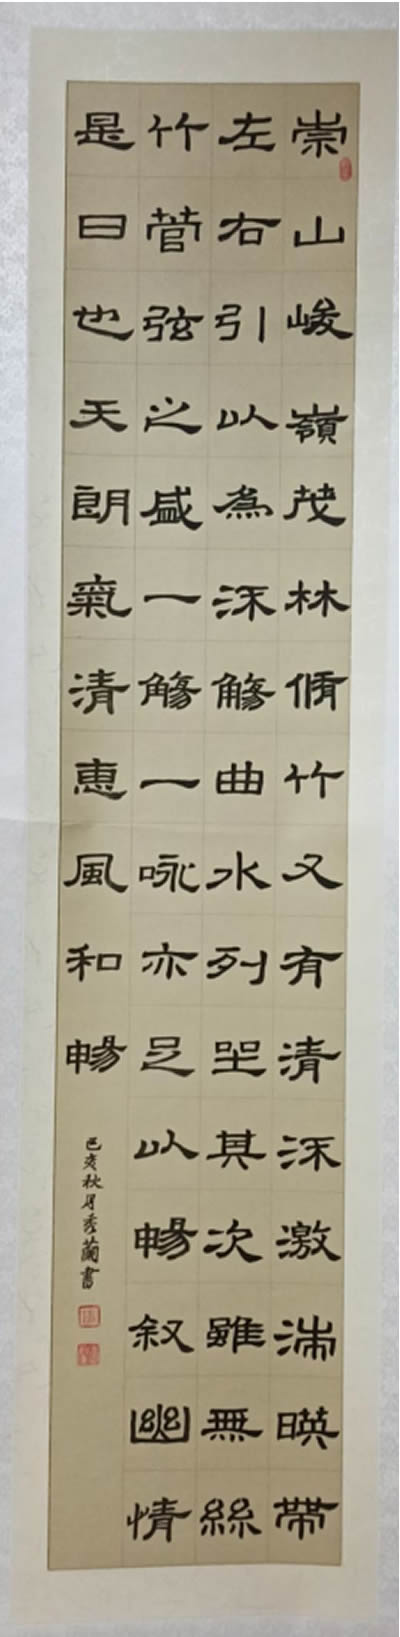 崇山峻嶺茂林脩竹又有清流激湍暎帶
左右引以為流觴曲水列坐其次雖無絲
竹管弦之盛一觴一咏亦足以暢叙幽情
是日也天朗氣清惠風和暢
己亥秋月秀蘭書